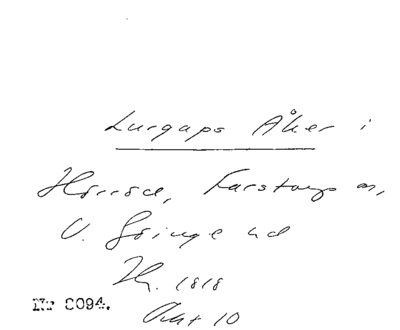 Lurgaps Åker i
Hörröd, Färstorps m,
V. Göinge hd
Kr. 1818
Akt 10
Nr 0094.